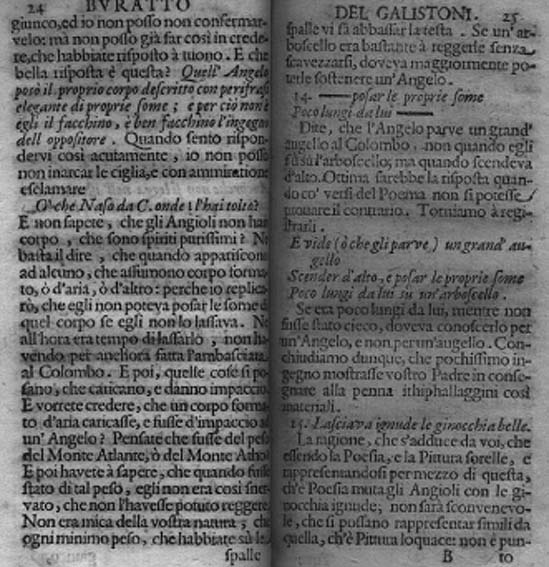 24 BVRATTO
giunco, ed io non posso non confermar-
velo: mà non posso già far così in crede-
re, che habbiate risposto à tuono. E che
bella risposta è questa? Quell' Angelo
posò il proprio corpo descritto con perifrasi
elegante di proprie some; e per ciò non è
egli il facchino, è ben facchino l'ingegno
dell oppositore. Quando sento rispon-
dervi così acutamente, io non posso
non inarcar le ciglia, e con ammiratione
esclamare
O' che Naso da C. onde l'hai tolto?
E non sapete, che gli Angioli non han
corpo, che sono spiriti purissimi? Nè
basta il dire, che quando appariscono
ad alcuno, che assumono corpo forma-
to, ò d'aria, ò d'altro: perche io replica-
rò, che egli non poteva posar le some di
quel corpo se egli non lo lassava. Nè
all'hora era tempo di lassarlo, non ha-
vendo per anchora fatta l'ambasciara
al Colombo. E poi, quelle cose si po-
sano, che caricano, e danno impaccio.
E vorrete credere, che un corpo forma-
to d'aria caricasse, e fusse d'impaccio ad
un' Angelo? Pensate che fusse del peso
del Monte Atlante, ò del Monte Atho.
E poi havete à sapere, che quando fusse
stato di tal peso, egli non era così sner-
vato, che non l'havesse potuto reggere.
Non era mica della vostra natura, che
ogni minimo peso, che habbiate sù le
spalle
DEL GALISTONI. 25
spalle vi fà abbassar la testa. Se un' ar-
boscello era bastante à reggerle senza
scavezzarsi, doveva maggiormente po-
terle sostenere un'Angelo.
14. —— posar le proprie some
Poco lungi da lui ——
Dite, che l'Angelo parve un grand'
augello al Colombo, non quando egli
fù sù l'arboscello; ma quando scendeva
d'alto. Ottima sarebbe la risposta quan-
do co' versi del Poema non si potesse
provare il contrario. Torniamo à regi-
strarli.
E vide (ò che gli parve) un grand' au-
gello
Scender d'alto, e posar le proprie some
Poco lungi da lui sù un'arboscello.
Se era poco lungi da lui, mentre non
fusse stato cieco, doveva conoscerlo per
un'Angelo, e non per un'augello. Con-
chiudiamo dunque, che pochissimo in-
gegno mostrasse vostro Padre in conse-
gnare alla penna ithiphallaggini così
materiali.
15. Lasciava ignude le ginocchia belle.
La ragione, che s'adduce da voi, che
essendo la Poesia, e la Pittura sorelle, e
rappresentandosi per mezo di questa,
ch'è Poesia muta gli Angioli con le gi-
nocchia ignude; non sarà sconvenevo-
le, che si possano rappresentar simili da
quella, ch'è Pittura loquace: non è pun-
B to